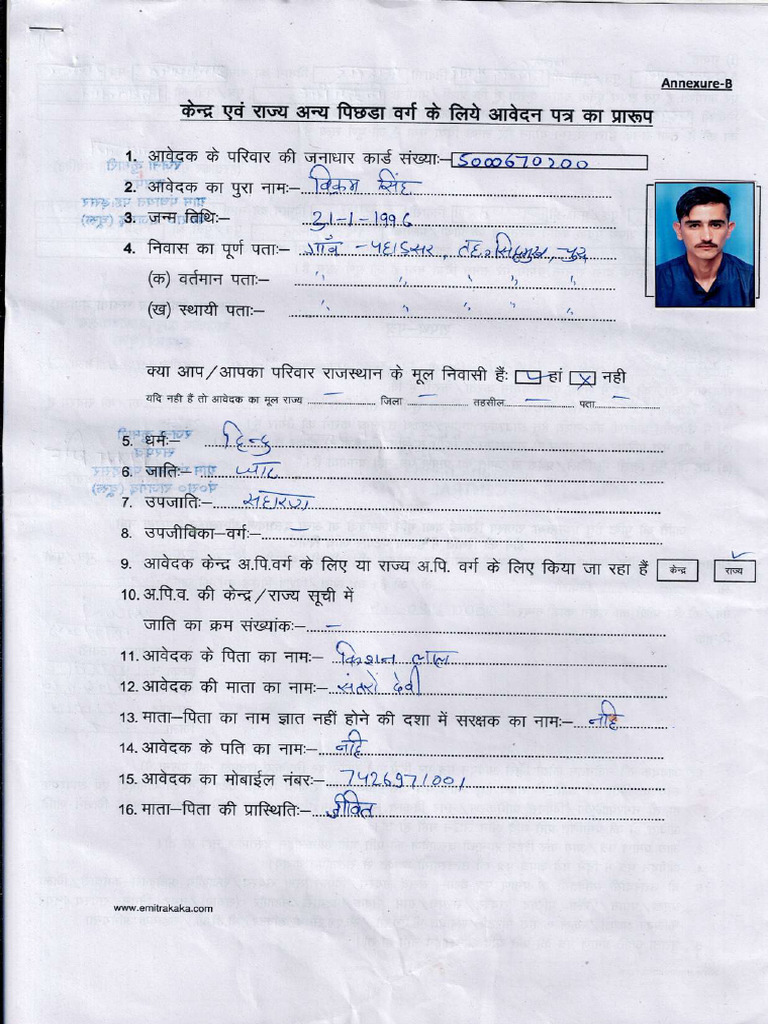 Annexure-B
केन्द्र एवं राज्य अन्य पिछडा वर्ग के लिये आवेदन पत्र का प्रारूप
1. आवेदक के परिवार की जनाधार कार्ड संख्याः- 5000670200
2. आवेदक का पुरा नामः- विक्रम सिंह
3. जन्म तिथिः- 31-1-1996
4. निवास का पूर्ण पताः- गाँव - पहाडसर, तह. सिद्धमुख, चुरू
(क) वर्तमान पताः- " " " "
(ख) स्थायी पताः- " " " "
क्या आप/आपका परिवार राजस्थान के मूल निवासी हैंः हां नही
यदि नही हैं तो आवेदक का मूल राज्य - जिला - तहसील - पता -
5. धर्मः- हिन्दु
6. जातिः- जाट
7. उपजातिः- सहारण
8. उपजीविका-वर्गः- -
9. आवेदक केन्द्र अ.पि.वर्ग के लिए या राज्य अ.पि. वर्ग के लिए किया जा रहा हैं केन्द्र राज्य
10. अ.पि.व. की केन्द्र/राज्य सूची में
जाति का क्रम संख्यांकः- -
11. आवेदक के पिता का नामः- किशन लाल
12. आवेदक की माता का नामः- संतरो देवी
13. माता-पिता का नाम ज्ञात नहीं होने की दशा में सरक्षक का नामः- नहि
14. आवेदक के पति का नामः- नहि
15. आवेदक का मोबाईल नंबरः- 7426971001
16. माता-पिता की प्रास्थितिः- जीवित
www.emitrakaka.com